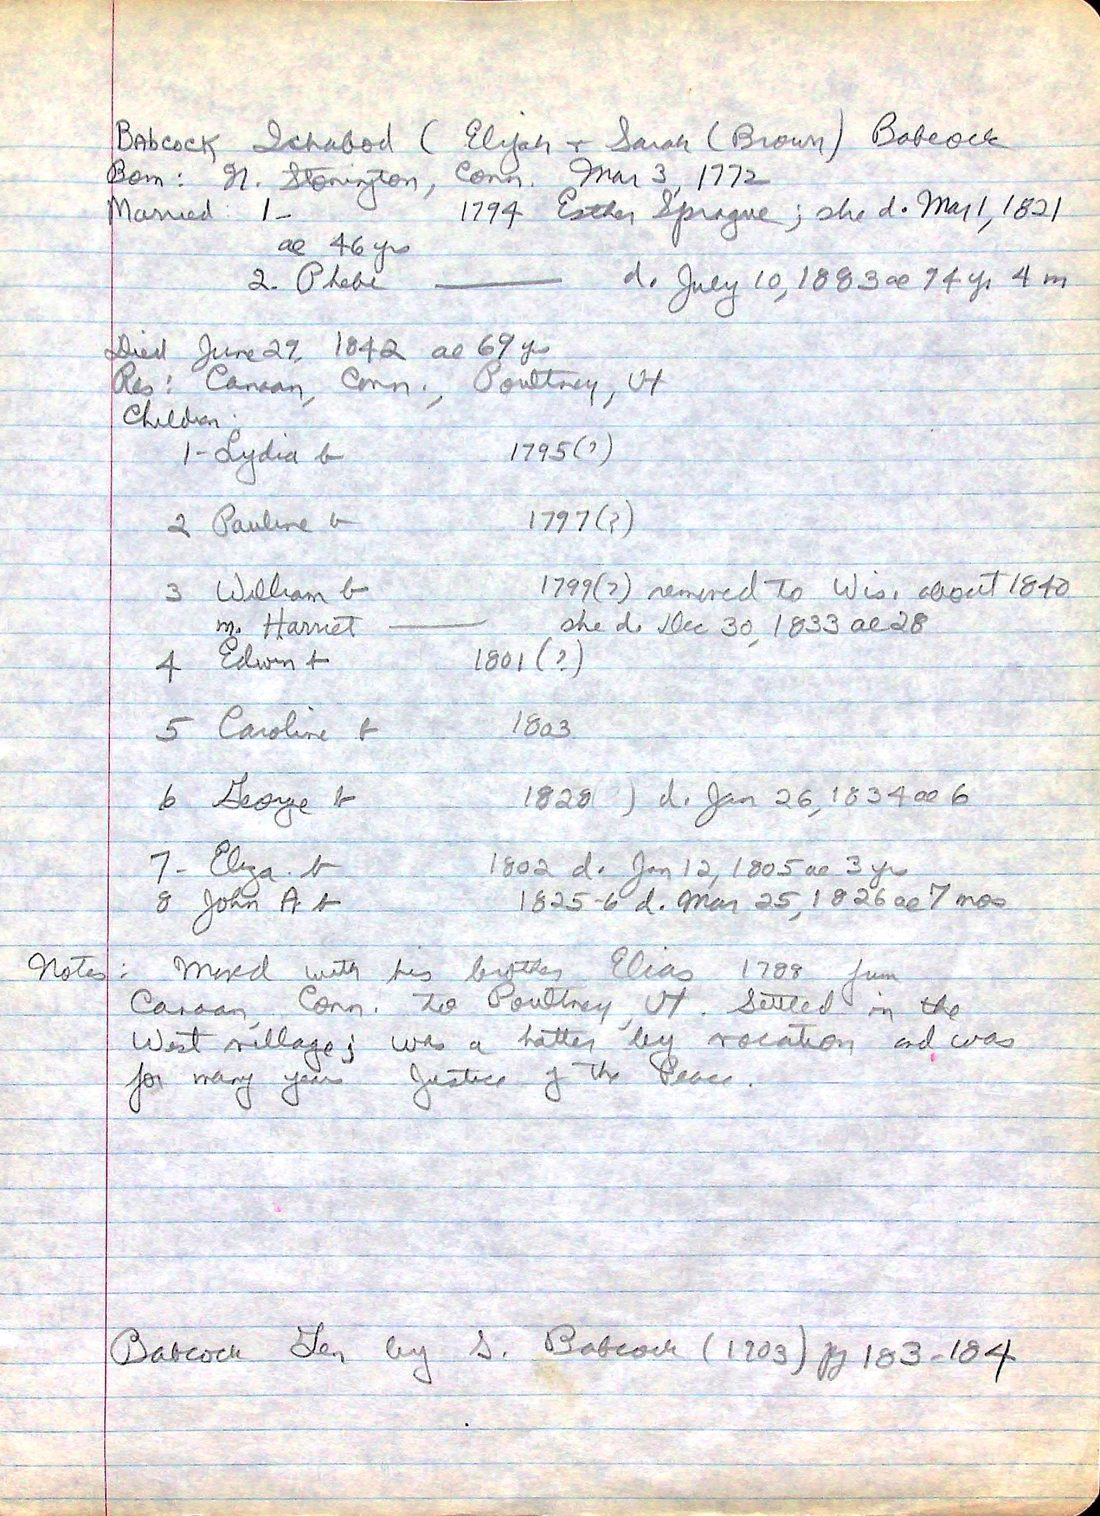 Babcock Ichabod ( Elijah + Sarah (Brown) Babcock
Born: N. Stonington, Conn. Mar 3, 1772
Married: 1- 1794 Esther Sprague; she d. May 1, 1821
ae 46 yrs
2. Phebe —— d. July 10, 1883 ae 74 y. 4 m
Died June 29, 1842 ae 69 ys
Res: Canaan, Conn., Poultney, Vt
Children:
1- Lydia b 1795(?)
2 Pauline b 1797(?)
3 William b 1799(?) removed to Wis. about 1840
m. Harriet —— she d. Dec 30, 1833 ae 28
4 Edwin b 1801 (?)
5 Caroline b 1803
6 George b 1828 ) d. Jan 26, 1834 ae 6
7- Eliza. b 1802 d. Jan 12, 1805 ae 3 yrs
8 John A b 1825-6 d. Mar 25, 1826 ae 7 mos
Notes: Moved with his brother Elias from
Canaan, Conn. to Poultney, Vt. Settled in the
West village; was a hatter by vocation and was
for many years Justice of the Peace.
Babcock Gen by S. Babcock (1903) pg 183-184